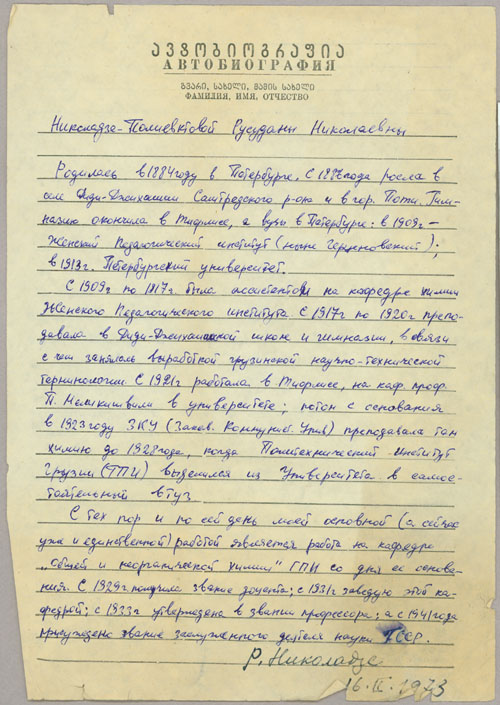 ავტობიოგრაფია
АВТОБИОГРАФИЯ
გვარი, სახელი, მამის სახელი
ФАМИЛИЯ, ИМЯ, ОТЧЕСТВО
Николадзе-Полиевктовой Русуданы Николаевны
Родилась в 1884 году в Петербурге. С 1886 года росла в
селе Диди-Джихаиши Самтредского р-она и в гор. Поти. Гим-
назию окончила в Тифлисе, а вузы в Петербурге: в 1909г —
Женский Педагогический институт (ныне Герценовский);
в 1913г. Петербургский университет.
С 1909г по 1917г. была ассистентом на кафедре химии
Женского Педагогического института. С 1917г по 1920г препо-
давала в Диди-Джихаишской школе и гимназии, в связи
с чем занялась выработкой грузинской научно-технической
терминологии. С 1921г работала в Тифлисе, на каф. проф.
П. Меликишвили в университете; потом с основания
в 1923 году ЗКУ (Закав. Коммунист. Унив) преподавала там
химию до 1928 года, когда Политехнический институт
Грузии (ГПИ) выделился из Университета в самос-
тоятельный втуз.
С тех пор и по сей день моей основной (а сейчас
уже и единственной) работой является работа на кафедре
„общей и неорганической химии" ГПИ со дня ее основа-
ния. С 1929г получила звание доцента; с 1931г заведую этой ка-
федрой; с 1933г утверждена в звании профессора; а с 1941 года
присуждено звание заслуженного деятеля науки ГССР.
Р. Николадзе
1973